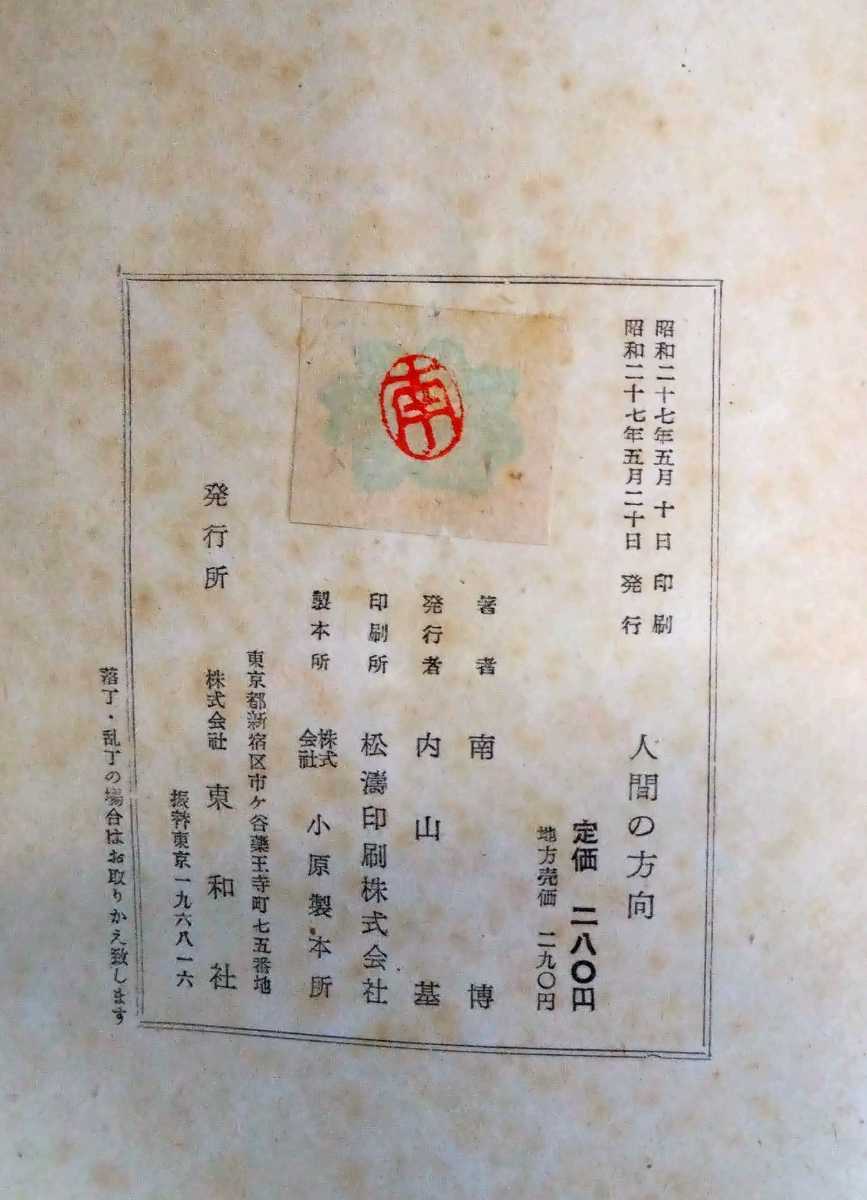 昭和二十七年五月十日 印刷
昭和二十七年五月二十日 発行
人間の方向
定価 二八〇円
地方売価 二九〇円
南
著者 南博
発行者 内山基
印刷所 松濤印刷株式会社
製本所 株式会社 小原製本所
東京都新宿区市ヶ谷薬王寺町七五番地
発行所 株式会社 東和社
振替東京一九六八一六
落丁・乱丁の場合はお取りかえ致します